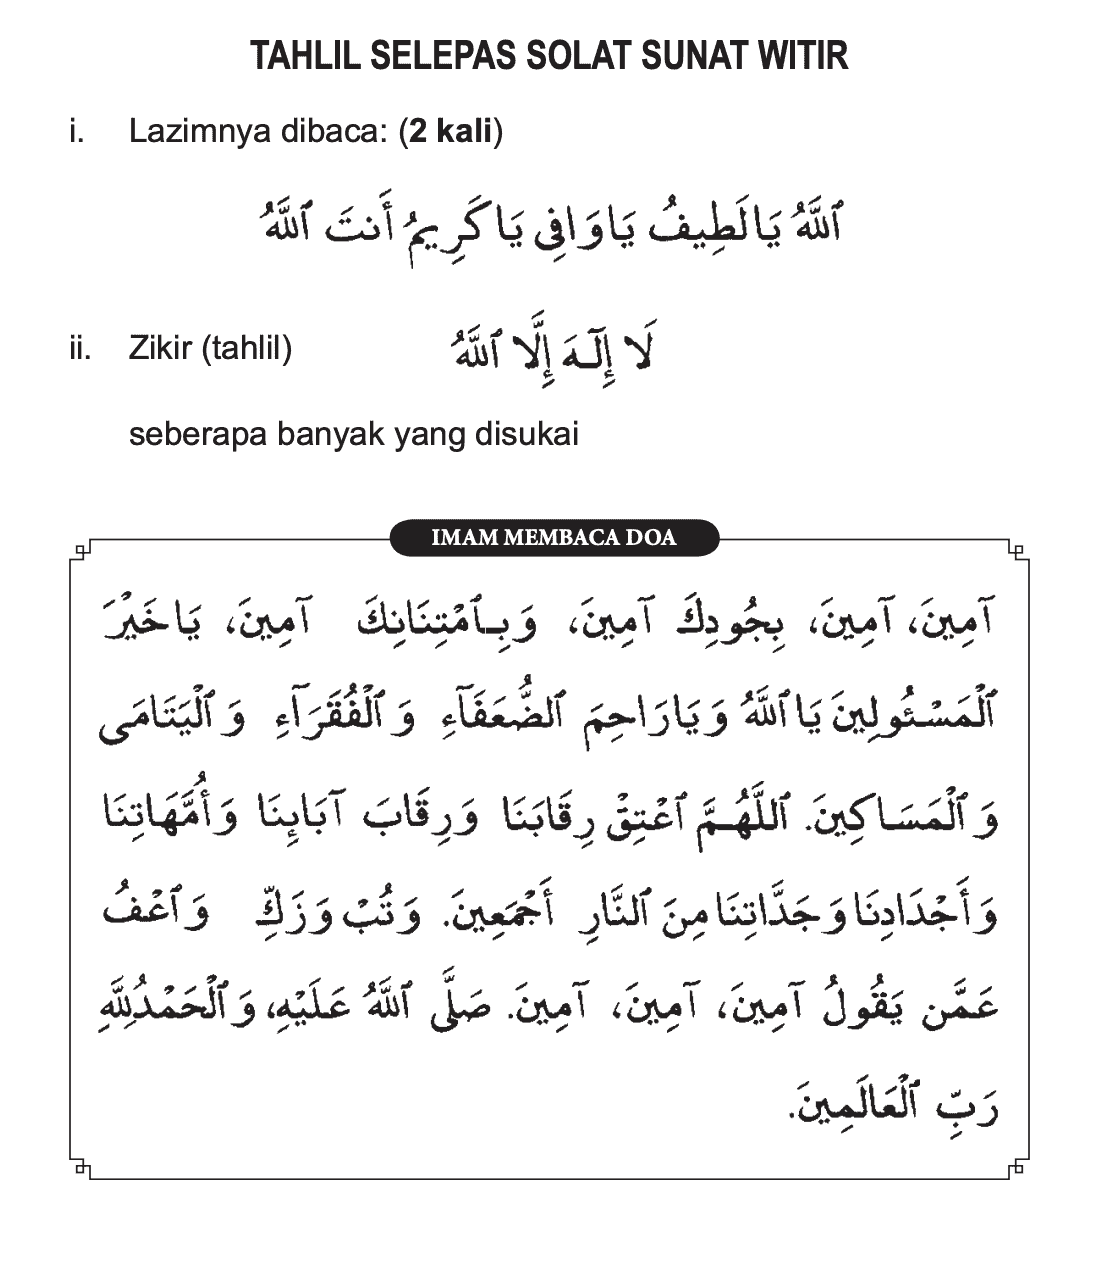 TAHLIL SELEPAS SOLAT SUNAT WITIR
i. Lazimnya dibaca: (2 kali)
ٱللَّهُ يَا لَطِيفُ يَا وَافِى يَا كَرِيمُ أَنتَ ٱللَّهُ
ii. Zikir (tahlil) لَا إِلَٓـهَ إِلَّا ٱللَّهُ
seberapa banyak yang disukai
IMAM MEMBACA DOA
آمِينَ، آمِينَ، بِجُودِكَ آمِينَ، وَبِـٱمْتِنَانِكَ آمِينَ، يَا خَيْرَ
ٱلْمَسْـُٔولِينَ يَا ٱللَّهُ وَيَا رَاحِمَ ٱلضُّعَفَآءِ وَٱلْفُقَرَآءِ وَٱلْيَتَامَى
وَٱلْمَسَاكِينَ. ٱللَّهُـمَّ ٱعْتِقْ رِقَابَنَا وَرِقَابَ آبَائِنَا وَأُمَّهَاتِنَا
وَأَجْدَادِنَا وَجَدَّاتِنَا مِنَ ٱلنَّارِ أَجْمَعِينَ. وَتُبْ وَزَكِّ وَٱعْفُ
عَمَّن يَقُولُ آمِينَ، آمِينَ، آمِينَ. صَلَّى ٱللَّهُ عَلَيْهِ، وَٱلْحَمْدُ لِلَّهِ
رَبِّ ٱلْعَالَمِينَ.